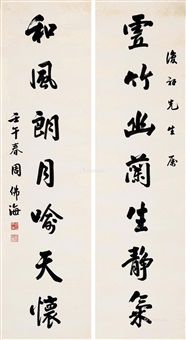 復初先生屬
虛竹幽蘭生靜氣
和風朗月喻天懷
壬午春周佛海